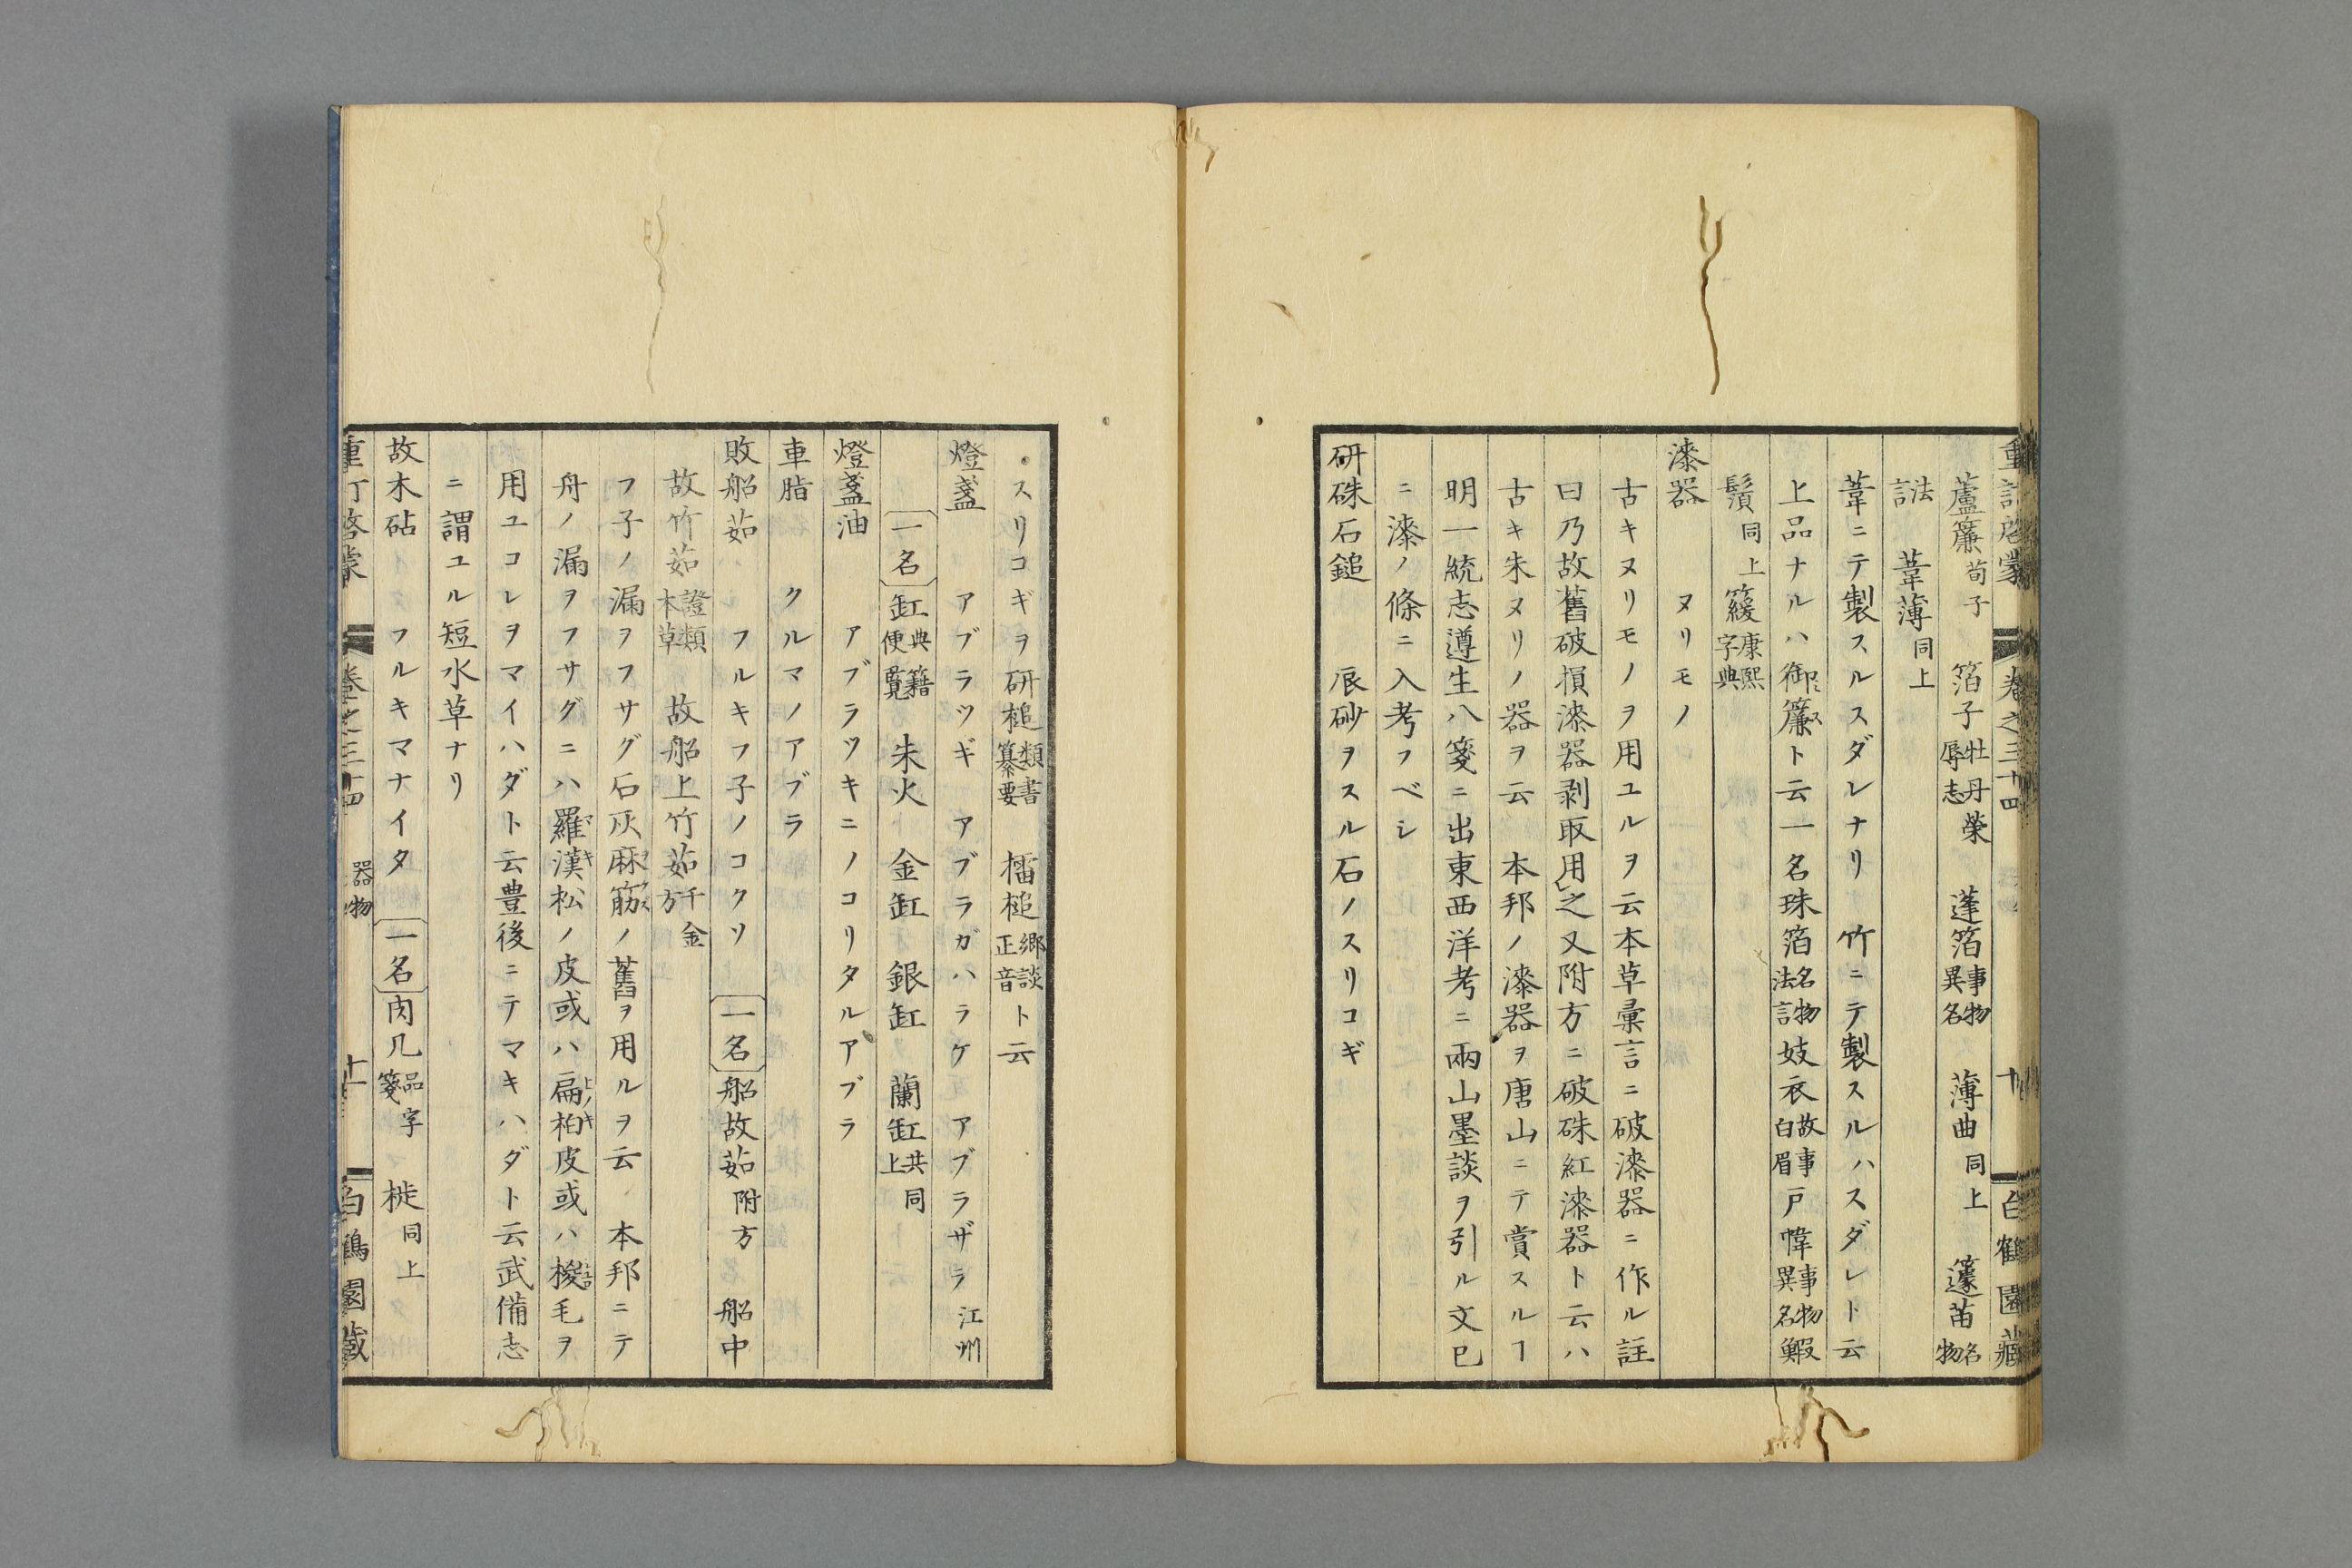 重訂啓蒙 卷之三十四 十 白鶴園藏
蘆簾荀子 箔子牡丹榮辱志 蓬箔事物異名 薄曲同上 籧苗名物
法言 葦薄同上
葦ニテ製スルスダレナリ 竹ニテ製スルハスダレト云
上品ナルハ御簾ト云一名珠箔名物法言 妓衣故事白眉 戸幃事物異名 鰕
鬚同上 簆康熙字典
漆器 ヌリモノ
古キヌリモノヲ用ユルヲ云本草彙言ニ破漆器ニ作ル註
曰乃故舊破損漆器剥取用之又附方ニ破硃紅漆器ト云ハ
古キ朱ヌリノ器ヲ云 本邦ノ漆器ヲ唐山ニテ賞スルヿ
明一統志遵生八箋ニ出東西洋考ニ兩山墨談ヲ引ル文已
ニ漆ノ條ニ入考フベシ
研硃石鎚 辰砂ヲスル石ノスリコギ
スリコギヲ研槌類書纂要 擂槌郷談正音ト云
燈盞 アブラツギ アブラガハラケ アブラザラ江州
一名 缸典籍便覽 朱火 金缸 銀缸 蘭缸共同上
燈盞油 アブラツキニノコリタルアブラ
車脂 クルマノアブラ
敗船茹 フルキフ子ノコクソ 一名 船故茹附方 船中
故竹茹證類本草 故船上竹茹千金方
フ子ノ漏ヲフサグ石灰麻筋ノ舊ヲ用ルヲ云 本邦ニテ
舟ノ漏ヲフサグニハ羅漢松ノ皮或ハ扁柏皮或ハ椶毛ヲ
用ユコレヲマイハダト云豊後ニテマキハダト云武備志
ニ謂ユル短水草ナリ
故木砧 フルキマナイタ 一名 肉几品字箋 㭙同上
重訂啓蒙 卷之三十四 器物 十一 白鶴園藏